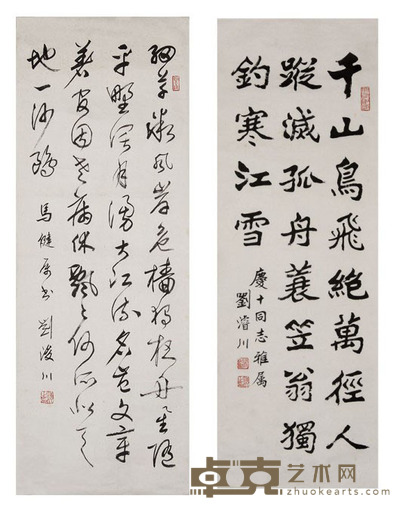 千山鳥飛絕萬徑人
蹤滅孤舟蓑笠翁獨
釣寒江雪
慶十同志雅属
劉濬川
細草微風岸危檣獨夜舟星隨
平野闊月湧大江流名豈文章
著官因老病休飄々何所似天
地一沙鷗
馬健属书 劉濬川
卓克艺术网
zhuokearts.com